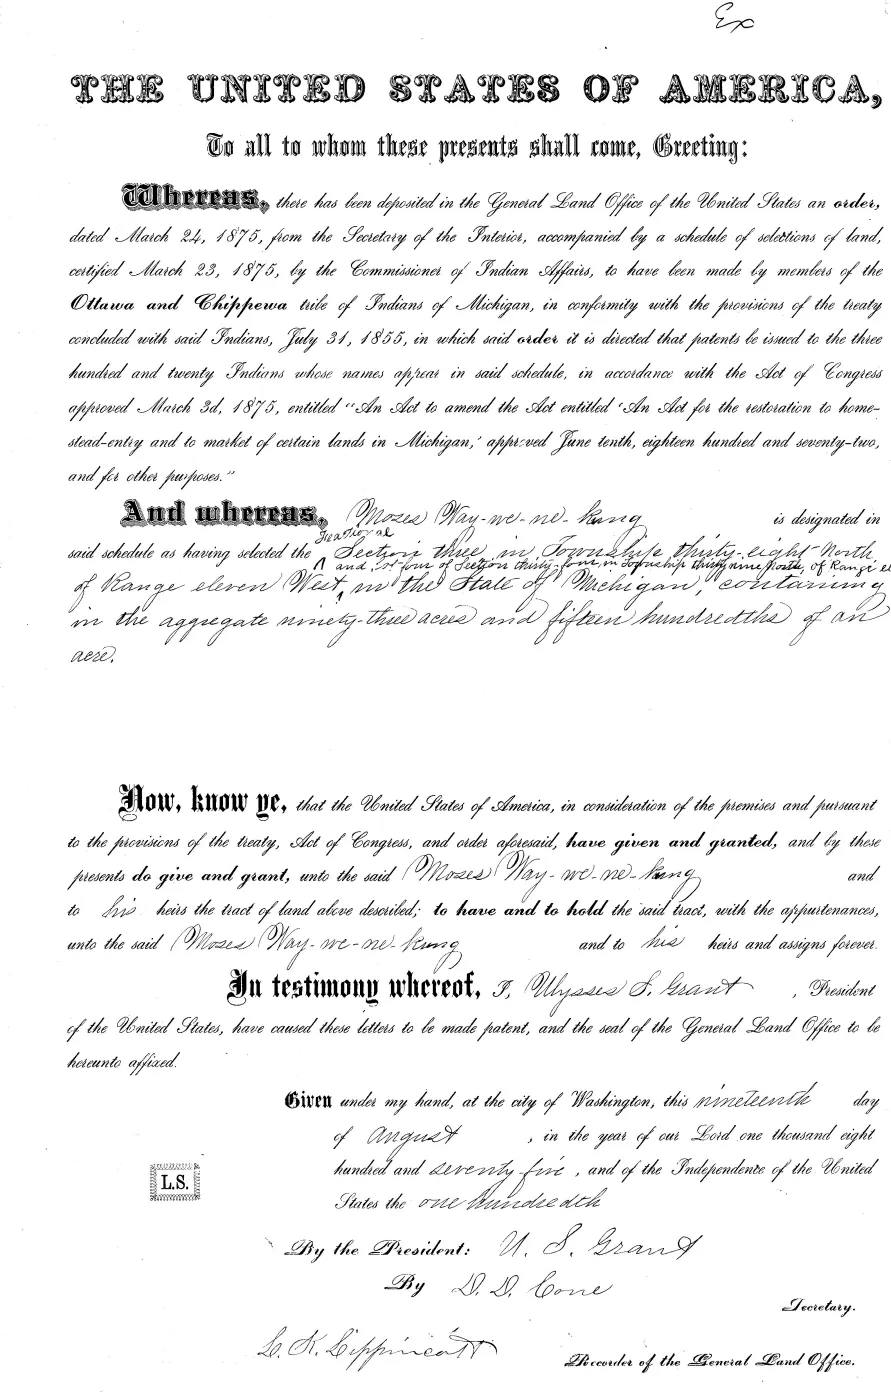 Ex
THE UNITED STATES OF AMERICA,
To all to whom these presents shall come, Greeting:
Whereas, there has been deposited in the General Land Office of the United States an order,
dated March 24, 1875, from the Secretary of the Interior, accompanied by a schedule of selections of land,
certified March 23, 1875, by the Commissioner of Indian Affairs, to have been made by members of the
Ottawa and Chippewa tribe of Indians of Michigan, in conformity with the provisions of the treaty
concluded with said Indians, July 31, 1855, in which said order it is directed that patents be issued to the three
hundred and twenty Indians whose names appear in said schedule, in accordance with the Act of Congress
approved March 3d, 1875, entitled "An Act to amend the Act entitled 'An Act for the restoration to home-
stead-entry and to market of certain lands in Michigan,' approved June tenth, eighteen hundred and seventy-two,
and for other purposes."
And whereas, Moses Way-we-ne-kung is designated in
Fractional
said schedule as having selected the Section three in Township thirty-eight North
and lot four of Section thirty-four in Township thirty nine North, of Range el
of Range eleven West, in the State of Michigan, containing
in the aggregate ninety-three acres and fifteen hundredths of an
acre.
Now, know ye, that the United States of America, in consideration of the premises and pursuant
to the provisions of the treaty, Act of Congress, and order aforesaid, have given and granted, and by these
presents do give and grant, unto the said Moses Way-we-ne-kung and
to his heirs the tract of land above described; to have and to hold the said tract, with the appurtenances,
unto the said Moses Way-we-ne-kung and to his heirs and assigns forever.
In testimony whereof, I, Ulysses S. Grant, President
of the United States, have caused these letters to be made patent, and the seal of the General Land Office to be
hereunto affixed.
Given under my hand, at the city of Washington, this nineteenth day
of August, in the year of our Lord one thousand eight
hundred and seventy five, and of the Independence of the United
L.S.
States the one hundredth
By the President: U. S. Grant
By D. D. Cone
Secretary.
L. K. Lippincott
Recorder of the General Land Office.